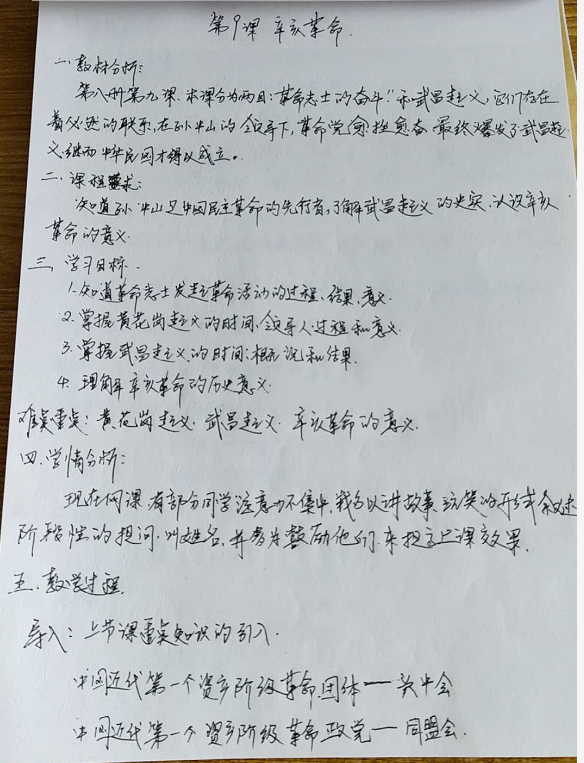 第9课 辛亥革命.
一、教材分析:
第八册第九课.本课分为两目:"革命志士的奋斗"和武昌起义,它们存在
着必然的联系,在孙中山的领导下,革命党愈挫愈奋,最终爆发了武昌起
义,继而中华民国才得以成立。
二、课程要求:
知道孙中山是中国民主革命的先行者,了解武昌起义的史实,认识辛亥
革命的意义.
三、学习目标.
1.知道革命志士发起革命活动的过程、结果、意义.
2.掌握黄花岗起义的时间、领导人、过程和意义.
3.掌握武昌起义的时间、概况和结果.
4.理解辛亥革命的历史意义.
难点重点:黄花岗起义.武昌起义.辛亥革命的意义.
四、学情分析:
现在网课,有部分同学注意力不集中,我多以讲故事、玩笑的形式叙述
阶段性的提问,叫姓名,并多为鼓励他们,来提高上课效果.
五、教学过程.
导入:上节课重点知识的引入.
中国近代第一个资产阶级革命团体——兴中会
中国近代第一个资产阶级革命政党——同盟会.